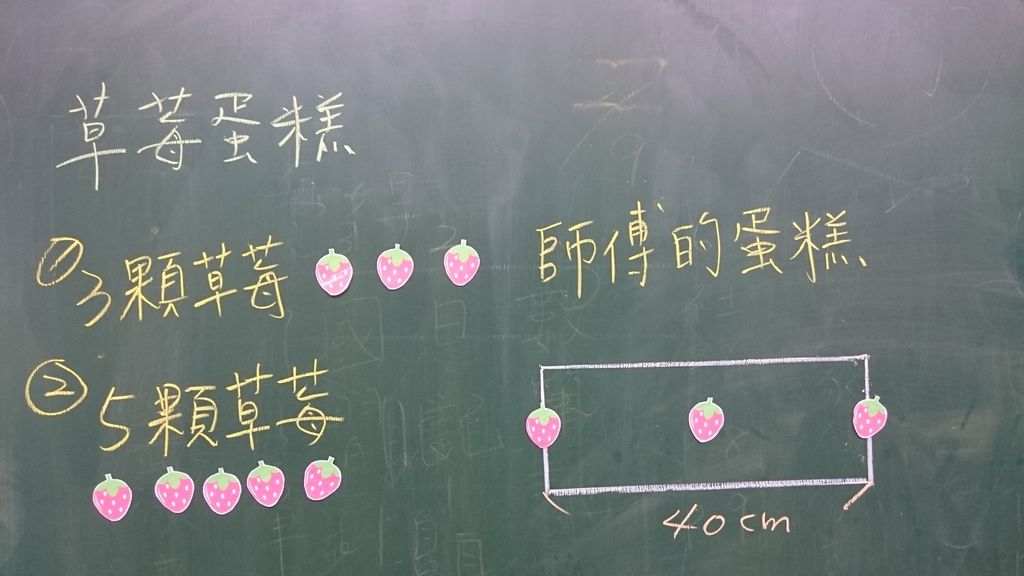 草莓蛋糕
① 3顆草莓
師傅的蛋糕
② 5顆草莓
40cm